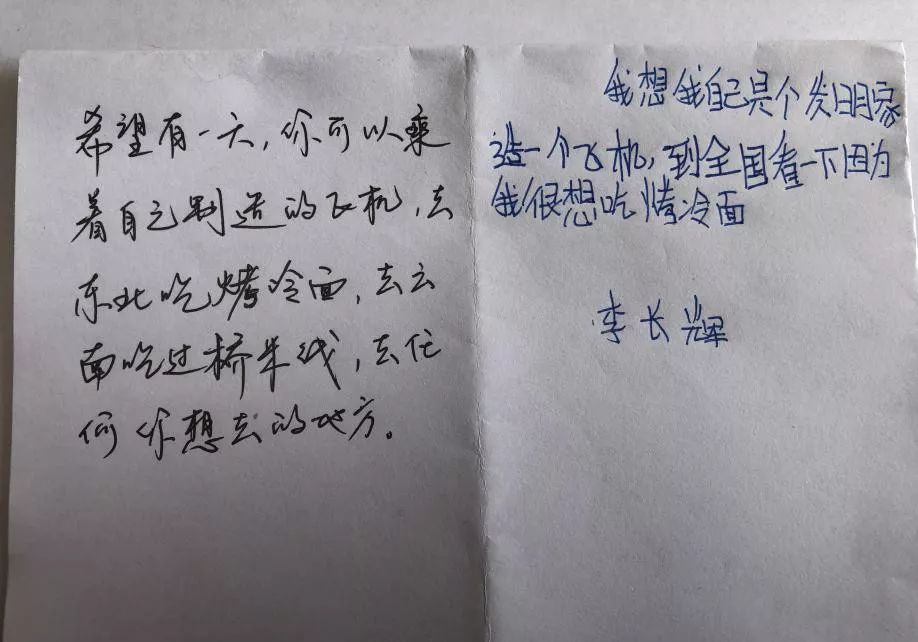 希望有一天，你可以乘
着自己制造的飞机，去
东北吃烤冷面，去云
南吃过桥米线，去任
何你想去的地方。
我想我自己是个发明家
造一个飞机，到全国看一下因为
我很想吃烤冷面
李长辉